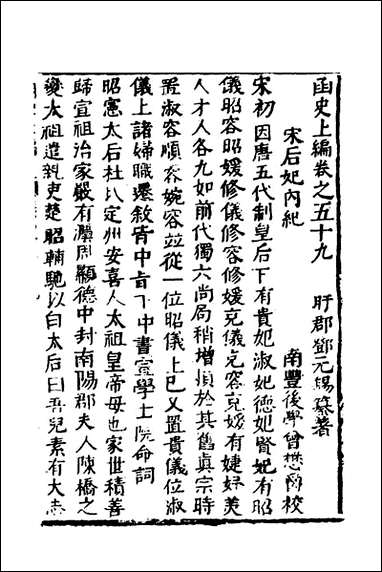 函史上編卷之五十九
盱郡鄧元錫纂著
宋后妃內紀
南豐後學曾懋爵校
宋初因唐五代制皇后下有貴妃淑妃德妃賢妃有昭
儀昭容昭媛修儀修容修媛充儀充容充媛有婕妤美
人才人各九如前代獨六尚局稍增損於其舊眞宗時
置淑容順容婉容並從一位昭儀上已又置貴儀位淑
儀上諸婦職遷敘皆中旨下中書宣學士院命詞
昭憲太后杜氏定州安喜人太祖皇帝母也家世積善
歸宣祖治家嚴有灋周顯德中封南陽郡夫人陳橋之
變太祖遣親吏楚昭輔馳以白太后曰吾兒素有大志